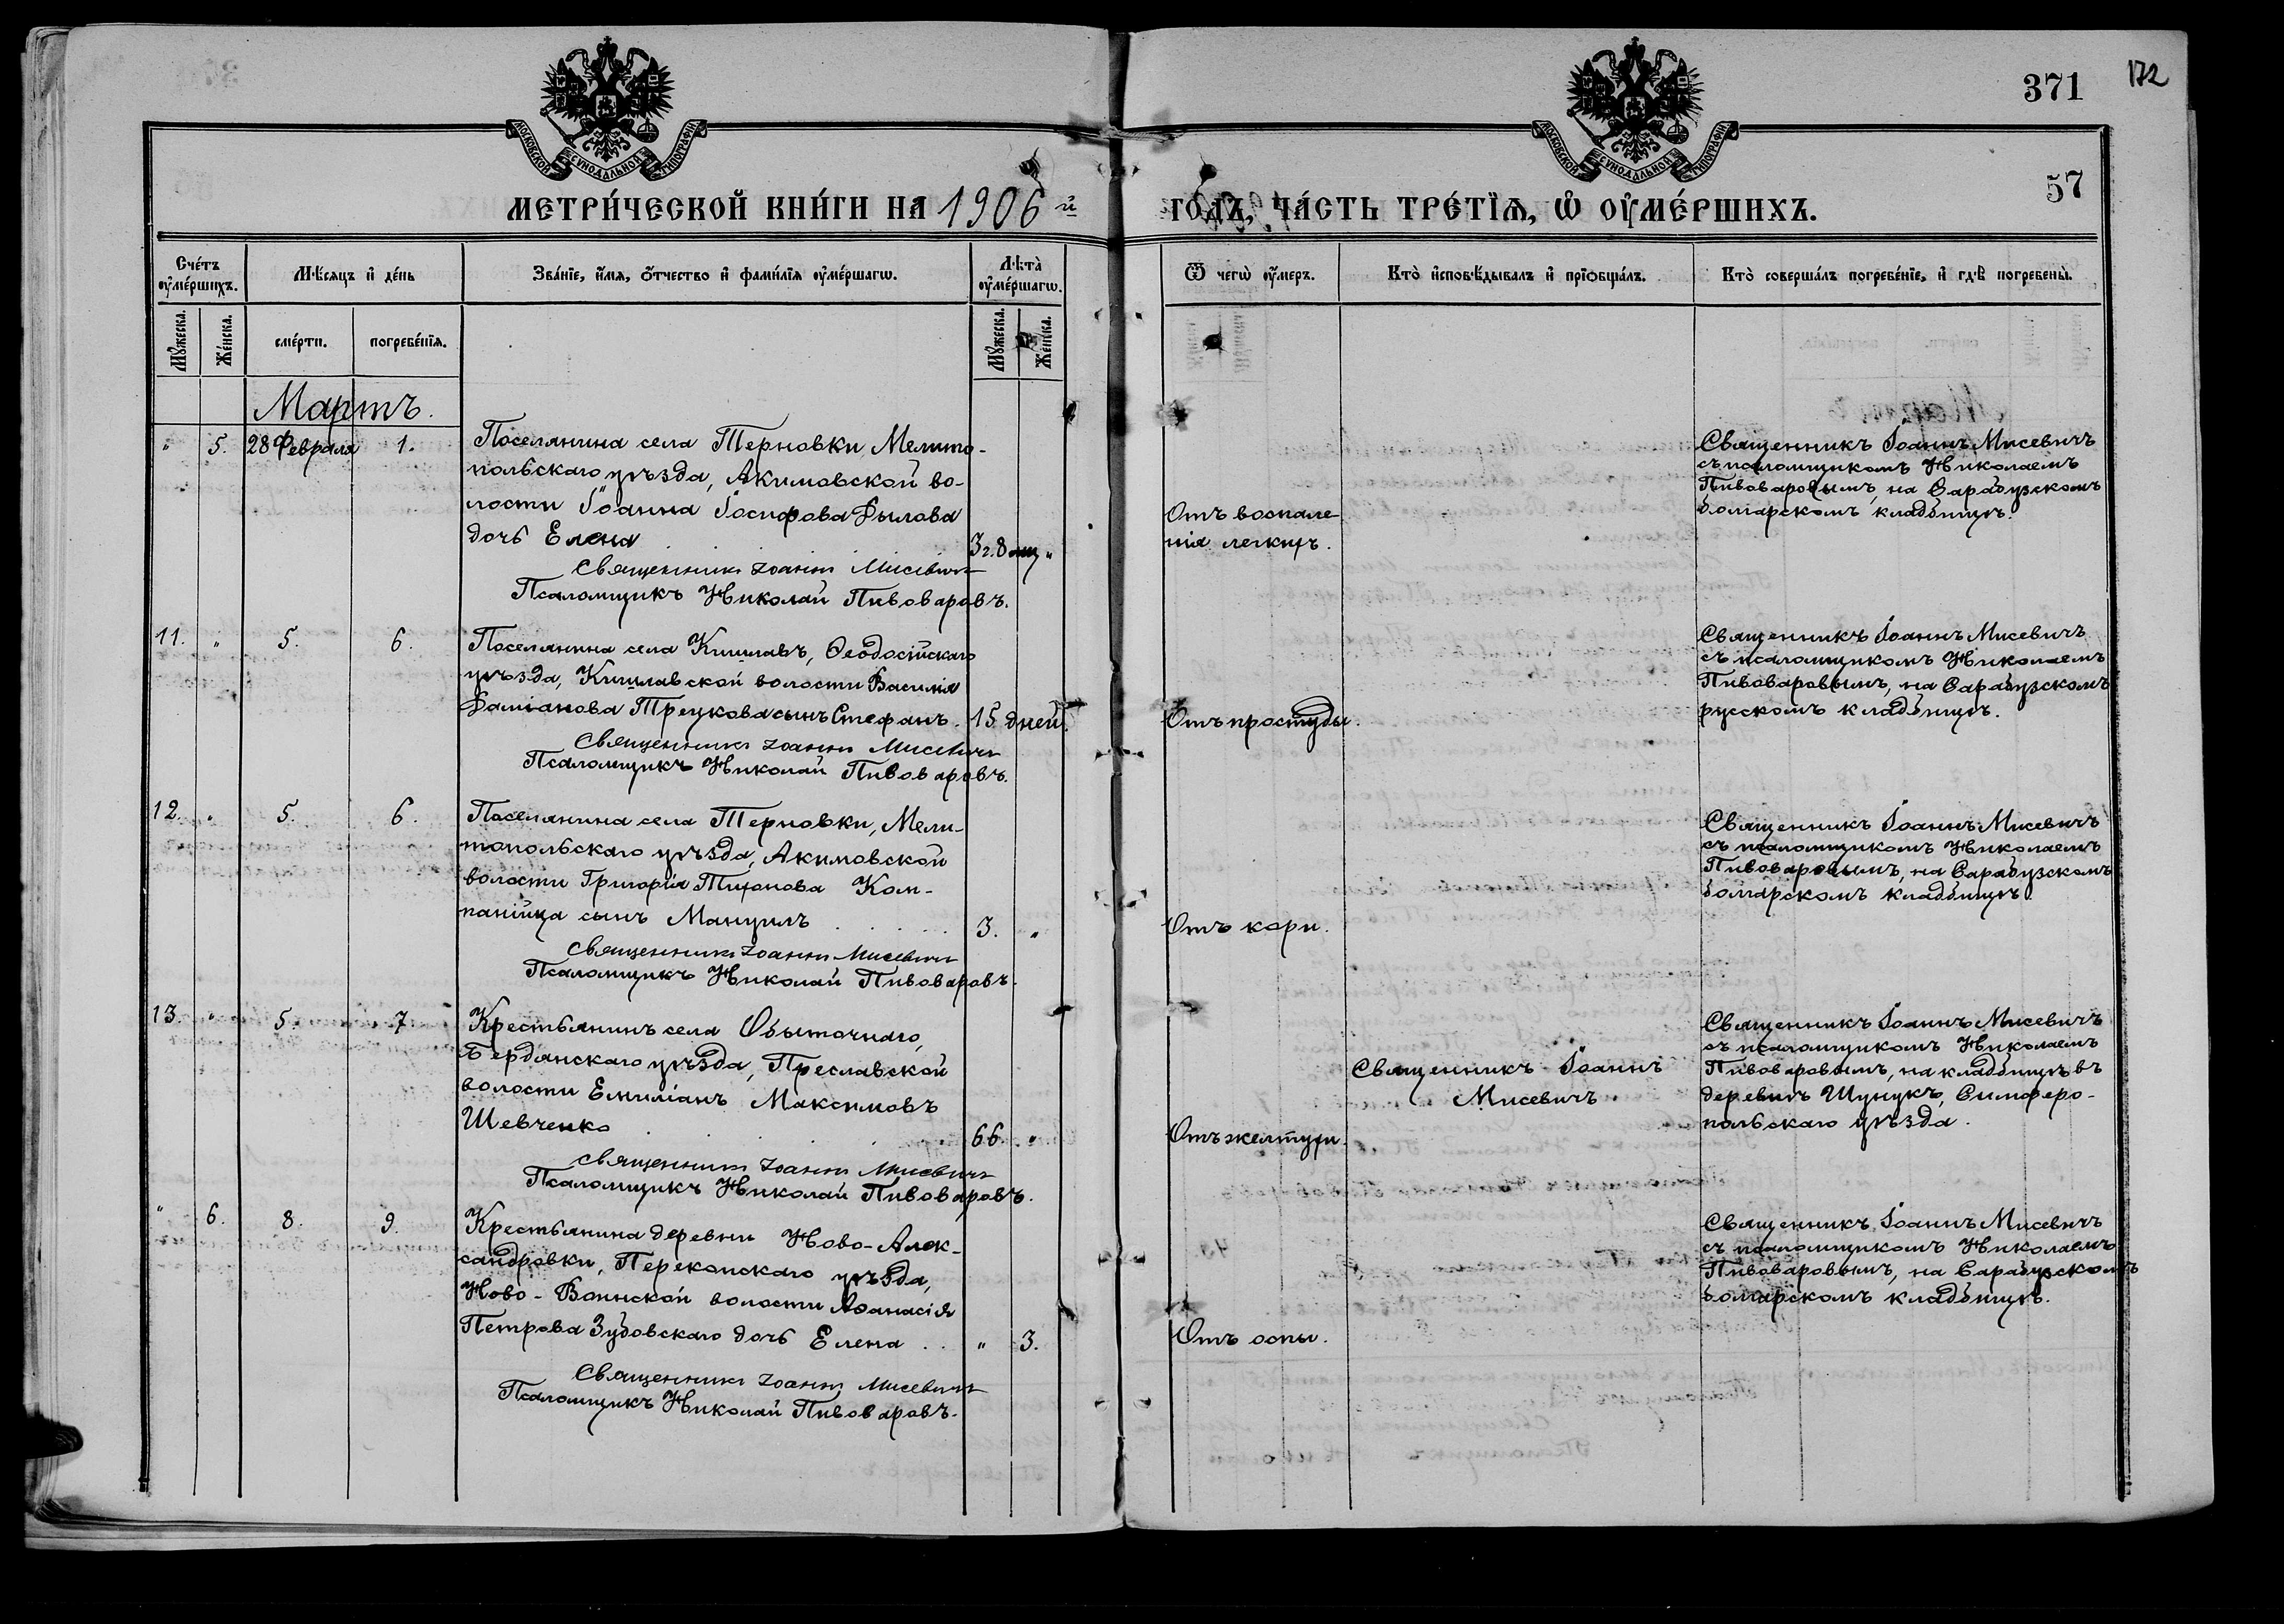 371
172
57
МОСКОВСКОЙ СѴНОДАЛЬНОЙ ТИПОГРАФІИ
МОСКОВСКОЙ СѴНОДАЛЬНОЙ ТИПОГРАФІИ
МЕТРИ́ЧЕСКОЙ КНИ́ГИ НА 1906 й ГОДЪ, ЧА́СТЬ ТРЕ́ТІѦ, Ѡ҆ ОУ҆МЕ́РШИХЪ.
Сче́тъ оу҆ме́ршихъ.
Мѣ́сяцъ и҆ де́нь
Зва́нїе, и҆́мя, ѻ҆́тчество и҆ фами́лїя оу҆ме́ршагѡ.
Лѣта̀ оу҆ме́ршагѡ.
Ѿ чегѡ̀ оу҆́меръ.
Кто̀ и҆сповѣ́дывалъ и҆ прїѡбща́лъ.
Кто̀ соверша́лъ погребе́нїе, и҆ гдѣ̀ погребены̀.
Мꙋ́жеска.
Же́нска.
сме́рти.
погребе́нїя.
Мꙋ́жеска.
Же́нска.
Мартъ.
" 5. 28 Февраля 1.
Поселянина села Терновки, Мелито-
польскаго уѣзда, Акимовской во-
лости Іоанна Іосифова Дылова
дочь Елена 3 г. 8 мц "
Священникъ Іоаннъ Мисевичъ
Псаломщикъ Николай Пивоваровъ.
Отъ воспале-
нія легкихъ.
Священникъ Іоаннъ Мисевичъ
съ псаломщикомъ Николаемъ
Пивоваровымъ, на Сарабузскомъ
болгарскомъ кладбищѣ.
11. " 5. 6.
Поселянина села Кишлавъ, Ѳеодосійскаго
уѣзда, Кишлавской волости Василія
Даміанова Трецкова сынъ Стефанъ. 15 дней.
Священникъ Іоаннъ Мисевичъ
Псаломщикъ Николай Пивоваровъ.
Отъ простуды.
Священникъ Іоаннъ Мисевичъ
съ псаломщикомъ Николаемъ
Пивоваровымъ, на Сарабузскомъ
русскомъ кладбищѣ.
12. " 5. 6.
Поселянина села Терновки, Мели-
топольскаго уѣзда, Акимовской
волости Григорія Тихонова Ком-
панійца сынъ Мануилъ 3. "
Священникъ Іоаннъ Мисевичъ
Псаломщикъ Николай Пивоваровъ.
Отъ кори.
Священникъ Іоаннъ Мисевичъ
съ псаломщикомъ Николаемъ
Пивоваровымъ, на Сарабузскомъ
болгарскомъ кладбищѣ.
13. " 5. 7
Крестьянинъ села Обыточнаго,
Бердянскаго уѣзда, Преславской
волости Емиліанъ Максимовъ
Шевченко 66. "
Священникъ Іоаннъ Мисевичъ
Псаломщикъ Николай Пивоваровъ.
Отъ желтухи.
Священникъ Іоаннъ
Мисевичъ
Священникъ Іоаннъ Мисевичъ
съ псаломщикомъ Николаемъ
Пивоваровымъ, на кладбищѣ въ
деревнѣ Шунукъ, Симферо-
польскаго уѣзда.
" 6. 8. 9.
Крестьянина деревни Ново-Алек-
сандровки, Перекопскаго уѣзда,
Ново-Воинской волости Аѳанасія
Петрова Зубовскаго дочь Елена " 3.
Священникъ Іоаннъ Мисевичъ
Псаломщикъ Николай Пивоваровъ.
Отъ оспы.
Священникъ Іоаннъ Мисевичъ
съ псаломщикомъ Николаемъ
Пивоваровымъ, на Сарабузскомъ
болгарскомъ кладбищѣ.